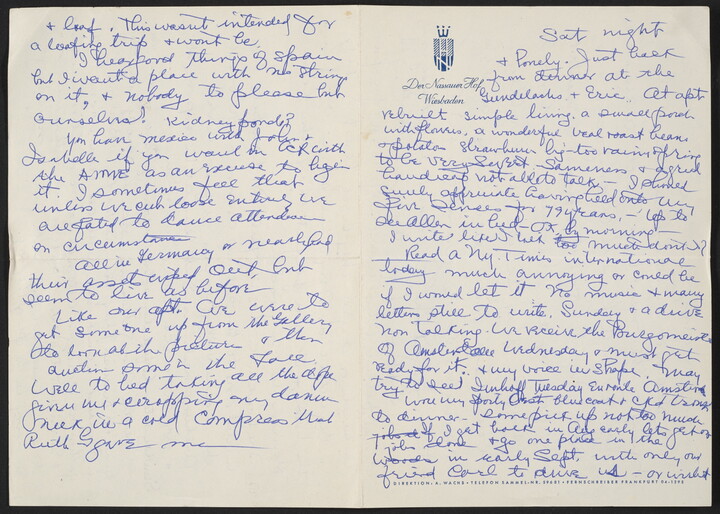 Der Nassauer Hof
Wiesbaden
Sat night
& Lonely. Just back
from dinner at the
Gundelachs & Eric. At apt
rebuilt simple living, a small porch
with flowers, a wonderful veal roast bean
& potatoes Strawberry big - too rainy spring
to be very sweet.
handicap not able to talk - I
surely appreciate having held onto my
five senses for 79 years, - Up to
see Allen in bed - OK by morning -
I write like I eat too much don't I?
Read a N.Y. Times international
today - much annoying or could be
if I would let it. No music & many
letters still to write. Sunday & a drive
non talking. We receive the Burgomeister
of Amsterdam Wednesday & must get
ready for it. & my voice in shape. May
try to see Imhoff Tuesday En route Amstdm
Wore my sporty blue coat & ckd trous
to dinner - Some pick up not too much
If I get back in Aug early lets get
jobs done & go one place in the
Woods in early Sept. with only our
friend Carl to drive us - or visit
DIREKTION: A. WACHS • TELEFON SAMMEL-NR. 39681 • FERNSCHREIBER FRANKFURT 04-1295
& loaf. This wasn't intended for
a loafing trip & wont be.
I hear good things of Spain
but I want a place with no strings
on it, & nobody to please but
ourselves! Kidney pond?
You have Mexico with John &
Isabelle if you want or CR with
the AMVE as an excuse to begin
it. I sometimes feel that
unless we cut loose entirely we
are fated to dance attendance
on circumstance
All in Germany or nearly had
their assets wiped out but
seem to live as before
Like our apt. We were to
get someone up from the Gallery
to look at the picture & then
auction some in the Fall.
Well to bed taking all the dope
given me & wrapping my damn
neck in a cold compress that
Ruth gave me